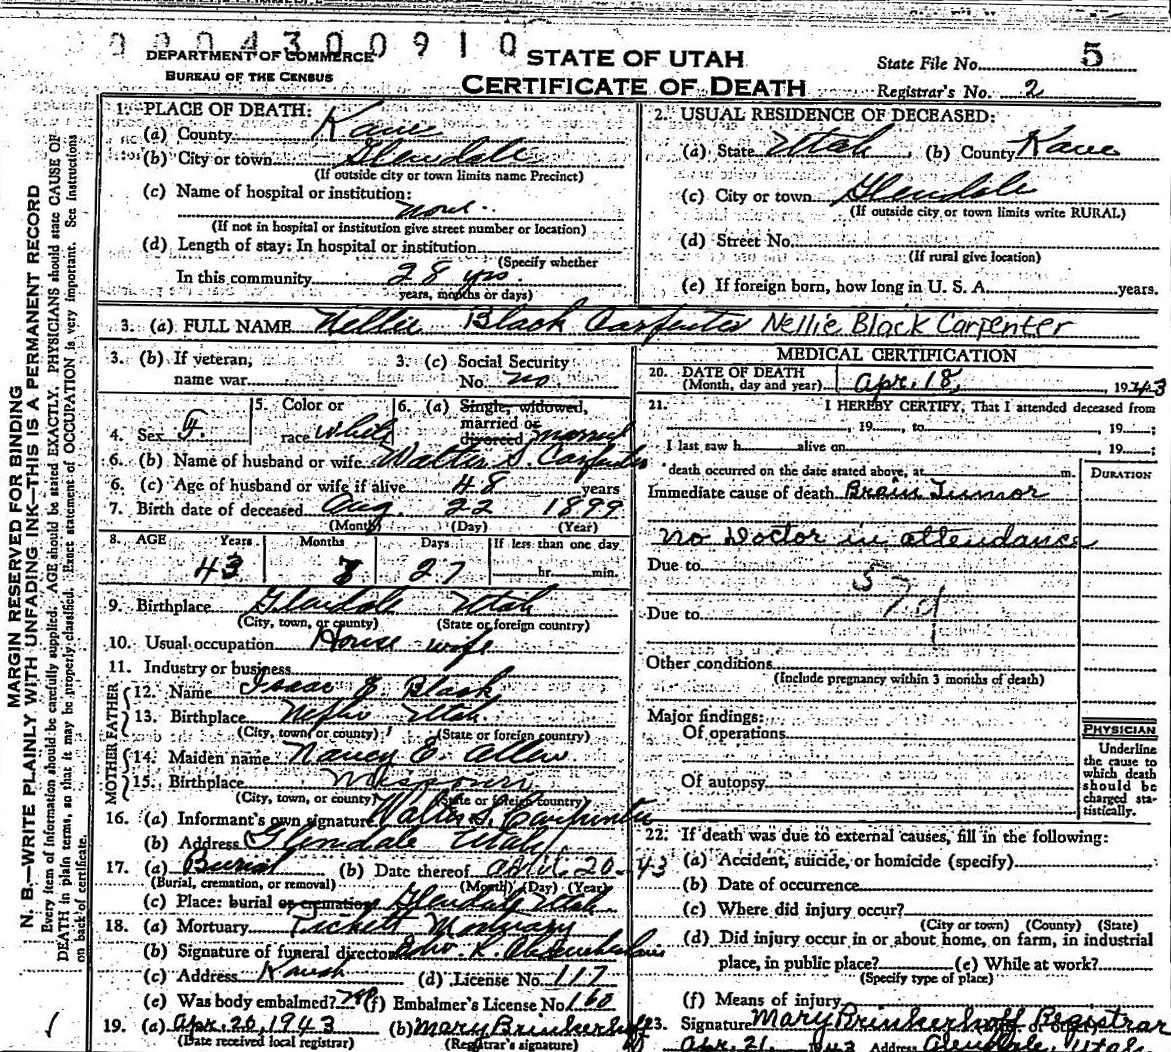 0004300910
DEPARTMENT OF COMMERCE
BUREAU OF THE CENSUS
STATE OF UTAH
CERTIFICATE OF DEATH
State File No. 5
Registrar's No. 2
MARGIN RESERVED FOR BINDING
N. B.—WRITE PLAINLY WITH UNFADING INK—THIS IS A PERMANENT RECORD
Every item of information should be carefully supplied. AGE should be stated EXACTLY. PHYSICIANS should state CAUSE OF
DEATH in plain terms, so that it may be properly classified. Exact statement of OCCUPATION is very important. See instructions
on back of certificate.
1. PLACE OF DEATH:
(a) County Kane
(b) City or town Glendale
(If outside city or town limits name Precinct)
(c) Name of hospital or institution:
none
(If not in hospital or institution give street number or location)
(d) Length of stay: In hospital or institution
(Specify whether
In this community 28 yrs.
years, months or days)
2. USUAL RESIDENCE OF DECEASED:
(a) State Utah (b) County Kane
(c) City or town Glendale
(If outside city or town limits write RURAL)
(d) Street No.
(If rural give location)
(e) If foreign born, how long in U. S. A. years.
3. (a) FULL NAME Nellie Black Carpenter Nellie Black Carpenter
3. (b) If veteran,
name war
3. (c) Social Security
No. no
4. Sex F.
5. Color or
race White
6. (a) Single, widowed,
married or
divorced married
6. (b) Name of husband or wife Walter S. Carpenter
6. (c) Age of husband or wife if alive 48 years
7. Birth date of deceased Aug. 22 1899
(Month) (Day) (Year)
8. AGE Years Months Days If less than one day
43 7 27 hr. min.
9. Birthplace Glendale Utah
(City, town, or county) (State or foreign country)
10. Usual occupation House wife
11. Industry or business
FATHER
12. Name Isaac E. Black
13. Birthplace Nephi Utah
(City, town or county) (State or foreign country)
MOTHER
14. Maiden name Nancy E. Allen
15. Birthplace Missouri
(City, town, or county) (State or foreign country)
16. (a) Informant's own signature Walter S. Carpenter
(b) Address Glendale Utah
17. (a) Burial (b) Date thereof April 20-43
(Burial, cremation, or removal) (Month) (Day) (Year)
(c) Place: burial or cremation Glendale Utah
18. (a) Mortuary Mortuary
(b) Signature of funeral director
(c) Address Kanab (d) License No. 117
(e) Was body embalmed? (f) Embalmer's License No. 160
19. (a) Apr. 20, 1943 (b) Mary Brinkerhoff
(Date received local registrar) (Registrar's signature)
MEDICAL CERTIFICATION
20. DATE OF DEATH
(Month, day and year) Apr. 18, 1943
21. I HEREBY CERTIFY, That I attended deceased from
, 19 , to , 19 ;
I last saw h alive on , 19 ;
death occurred on the date stated above, at m.
DURATION
Immediate cause of death Brain Tumor
no Doctor in attendance
Due to
Due to
Other conditions
(Include pregnancy within 3 months of death)
Major findings:
Of operations
Of autopsy
PHYSICIAN
Underline
the cause to
which death
should be
charged sta-
tistically.
22. If death was due to external causes, fill in the following:
(a) Accident, suicide, or homicide (specify)
(b) Date of occurrence
(c) Where did injury occur?
(City or town) (County) (State)
(d) Did injury occur in or about home, on farm, in industrial
place, in public place? (e) While at work?
(Specify type of place)
(f) Means of injury
23. Signature Mary Brinkerhoff Registrar
Apr. 21. 1943 Address Glendale, Utah